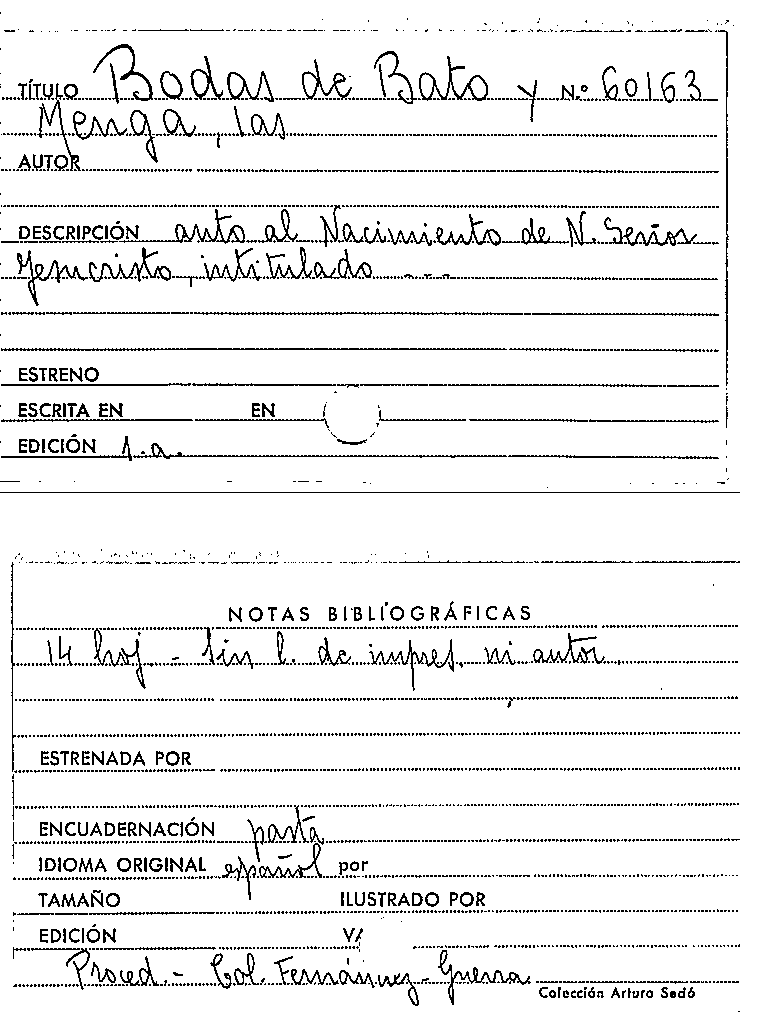 TÍTULO Bodas de Bato y N.º 60163
Menga, las
AUTOR
DESCRIPCIÓN auto al Nacimiento de N. Señor
Jesucristo, intitulado ---
ESTRENO
ESCRITA EN EN
EDICIÓN 1.a.
NOTAS BIBLIOGRÁFICAS
14 hoj - Sin l. de impres. ni autor.
ESTRENADA POR
ENCUADERNACIÓN pasta
IDIOMA ORIGINAL español por
TAMAÑO ILUSTRADO POR
EDICIÓN V/
Proced.- Col. Fernánnez-Guerra
Colección Arturo Sedó